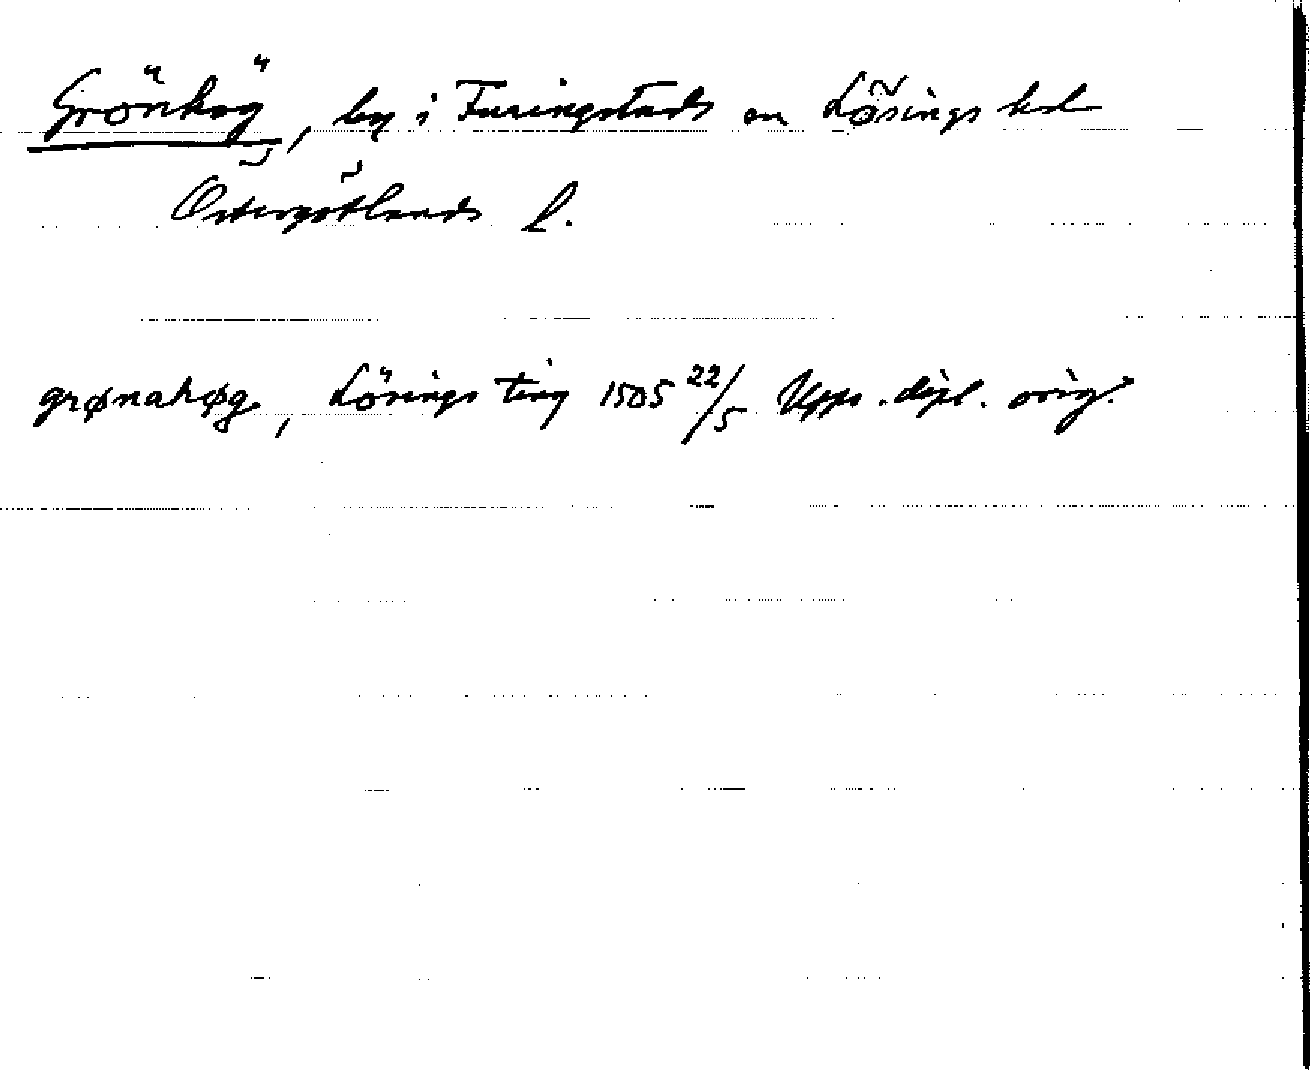 Grönhög, by i Furingstads sn Lösings hd
Östergötlands l.
grønahøg, Lösings ting 1505 22/5 Upps. dipl. orig.